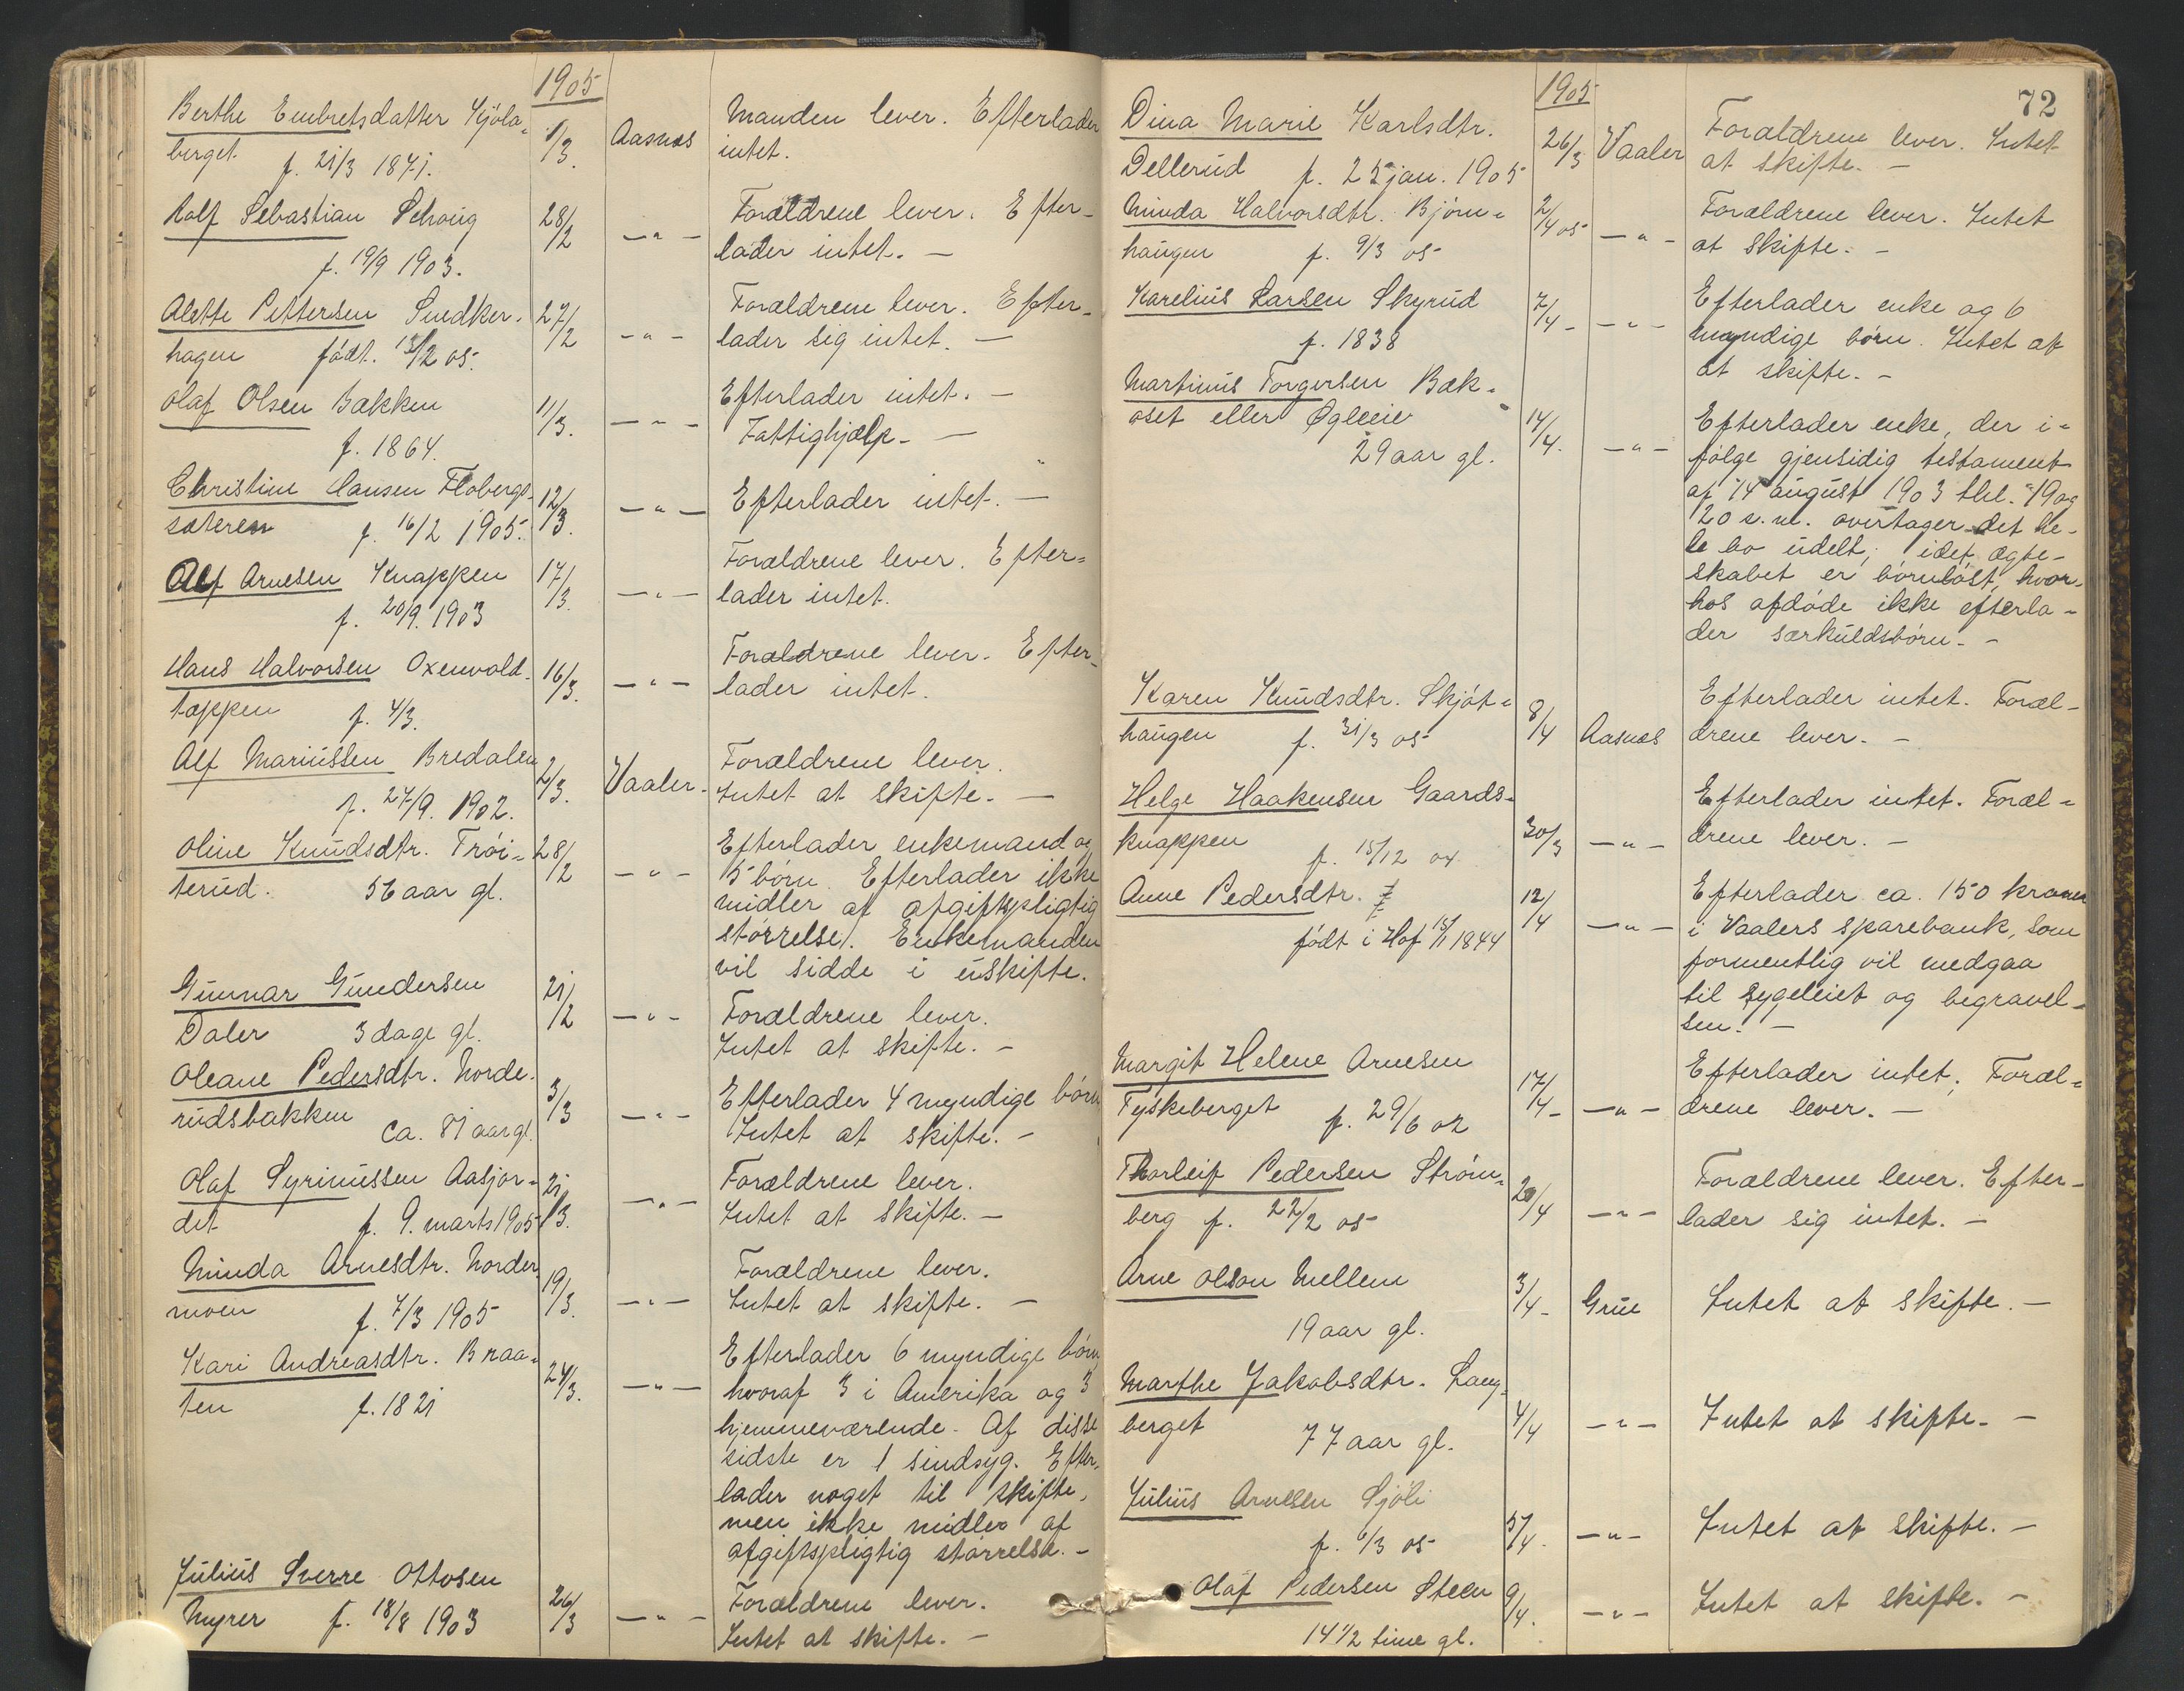 1905
Berthe Embretsdatter Kjóla-
berget. f. 21/3 1871.
1/3.
Aasnæs
Manden lever. Efterlader
intet.
Rolf Sebastian Schoüg
f. 19/9 1903.
28/2
— " —
Forældrene lever. Efter-
lader intet. —
Alette Pettersen Snedker-
hagen fódt. 13/2 05.
27/2
— " —
Forældrene lever. Efter-
lader sig intet. —
Olaf Olsen Bakken
f. 1864.
11/3.
— " —
Efterlader intet. —
Fattighjælp. —
Christine Hansen Flobergs-
sæteren f. 16/2 1905.
12/3.
— " —
Efterlader intet. —
Alf Arnesen Knappen
f. 20/9. 1903
17/3.
— " —
Forældrene lever. Efter-
lader intet.
Hans Halvorsen Oxenvold-
tappen f. 4/3.
16/3.
— " —
Forældrene lever. Efter-
lader intet.
Alf Mariüssen Bredalen
f. 27/9. 1902.
2/3.
Vaaler.
Forældrene lever.
Intet at skifte. —
Oline Knüdsdtr. Trói-
terüd. 56 aar gl.
28/2
— " —
Efterlader enkemand og
5 børn. Efterlader ikke
midler af afgiftspligtig
størrelse. Enkemanden
vil sidde i üskifte.
Günnar Gündersen
Daler 3 dage gl.
21/2
— " —
Forældrene lever.
Intet at skifte. —
Oleane Pedersdtr. Norde-
rüdsbakken ca. 81 aar gl.
3/3
— " —
Efterlader 4 myndige børn
Intet at skifte. —
Olaf Syrinüssen Aasjor-
det f. 9. marts 1905
21/3.
— " —
Forældrene lever.
Intet at skifte. —
Minda Arnesdtr. Norder
moen f. 7/3 1905
19/3.
— " —
Forældrene lever.
Intet at skifte. —
Kari Andreasdtr. Braa-
ten f. 1821
24/3.
— " —
Efterlader 6 myndige børn
hvoraf 3 i Amerika og 3
hjemmeværende. Af disse
sidste er 1 sindsyg. Efter-
lader noget til skifte,
men ikke midler af
afgiftspligtig størrelse. —
Jüliüs Sverre Ottosen
Myrer f. 18/8 1903
26/3
— " —
Forældrene lever.
Intet at skifte. —
72
1905
Dina Marie Karlsdtr.
Dellerüd f. 25 jan. 1905
26/3
Vaaler
Forældrene lever. Intet
at skifte. —
Minda Halvorsdtr. Bjórn-
haügen f. 9/3 05
2/4 05
— " —
Forældrene lever. Intet
at skifte. —
Kareliüs Larsen Skyrüd
f. 1838
7/4 -
— " —
Efterlader enke og 6
myndige børn. Intet at
at skifte. —
Martinüs Torgersen Bæk-
oset eller Ógleeie
29 aar gl.
14/4.
— " —
Efterlader enke, der i-
fólge gjensidig testament
af 14 aügüst 1903 thl. 19 og
20 s. m. overtager det he-
le bo üdelt, idet ægte-
skabet er børnløst, hvor-
hos afdøde ikke efterla-
der særküldsbørn. —
Karen Knüdsdtr. Skjót-
haügen f. 31/3 05
8/4
Aasnæs
Efterlader intet. Foræl-
drene lever. —
Helge Haakensen Gaards-
knappen f. 15/12 04
30/3
— " —
Efterlader intet. Foræl-
drene lever. —
Anne Pedersdtr.
født i Hof 15/1 1844
12/4
— " —
Efterlader ca. 150 kroner
i Vaalers sparebank, som
formentlig vil medgaa
til sygeleiet og begravel-
sen. —
Margit Helene Arnesen
Tyskeberget f. 29/6 02
17/4 -
— " —
Efterlader intet; Foræl-
drene lever. —
Thorleif Pedersen Strøm-
berg f. 22/2 05
20/4
— " —
Forældrene lever. Efter-
lader sig intet. —
Arne Olson Mellem
19 aar gl.
3/4 -
Grüe
Intet at skifte. —
Marthe Jakobsdtr. Lang-
berget 77 aar gl.
4/4
— " —
Intet at skifte. —
Jüliüs Arnesen Sjóli
f. 6/3 05
5/4.
— " —
Intet at skifte. —
Olaf Pedersen Steen
14 1/2 time gl.
9/4.
— " —
Intet at skifte. —